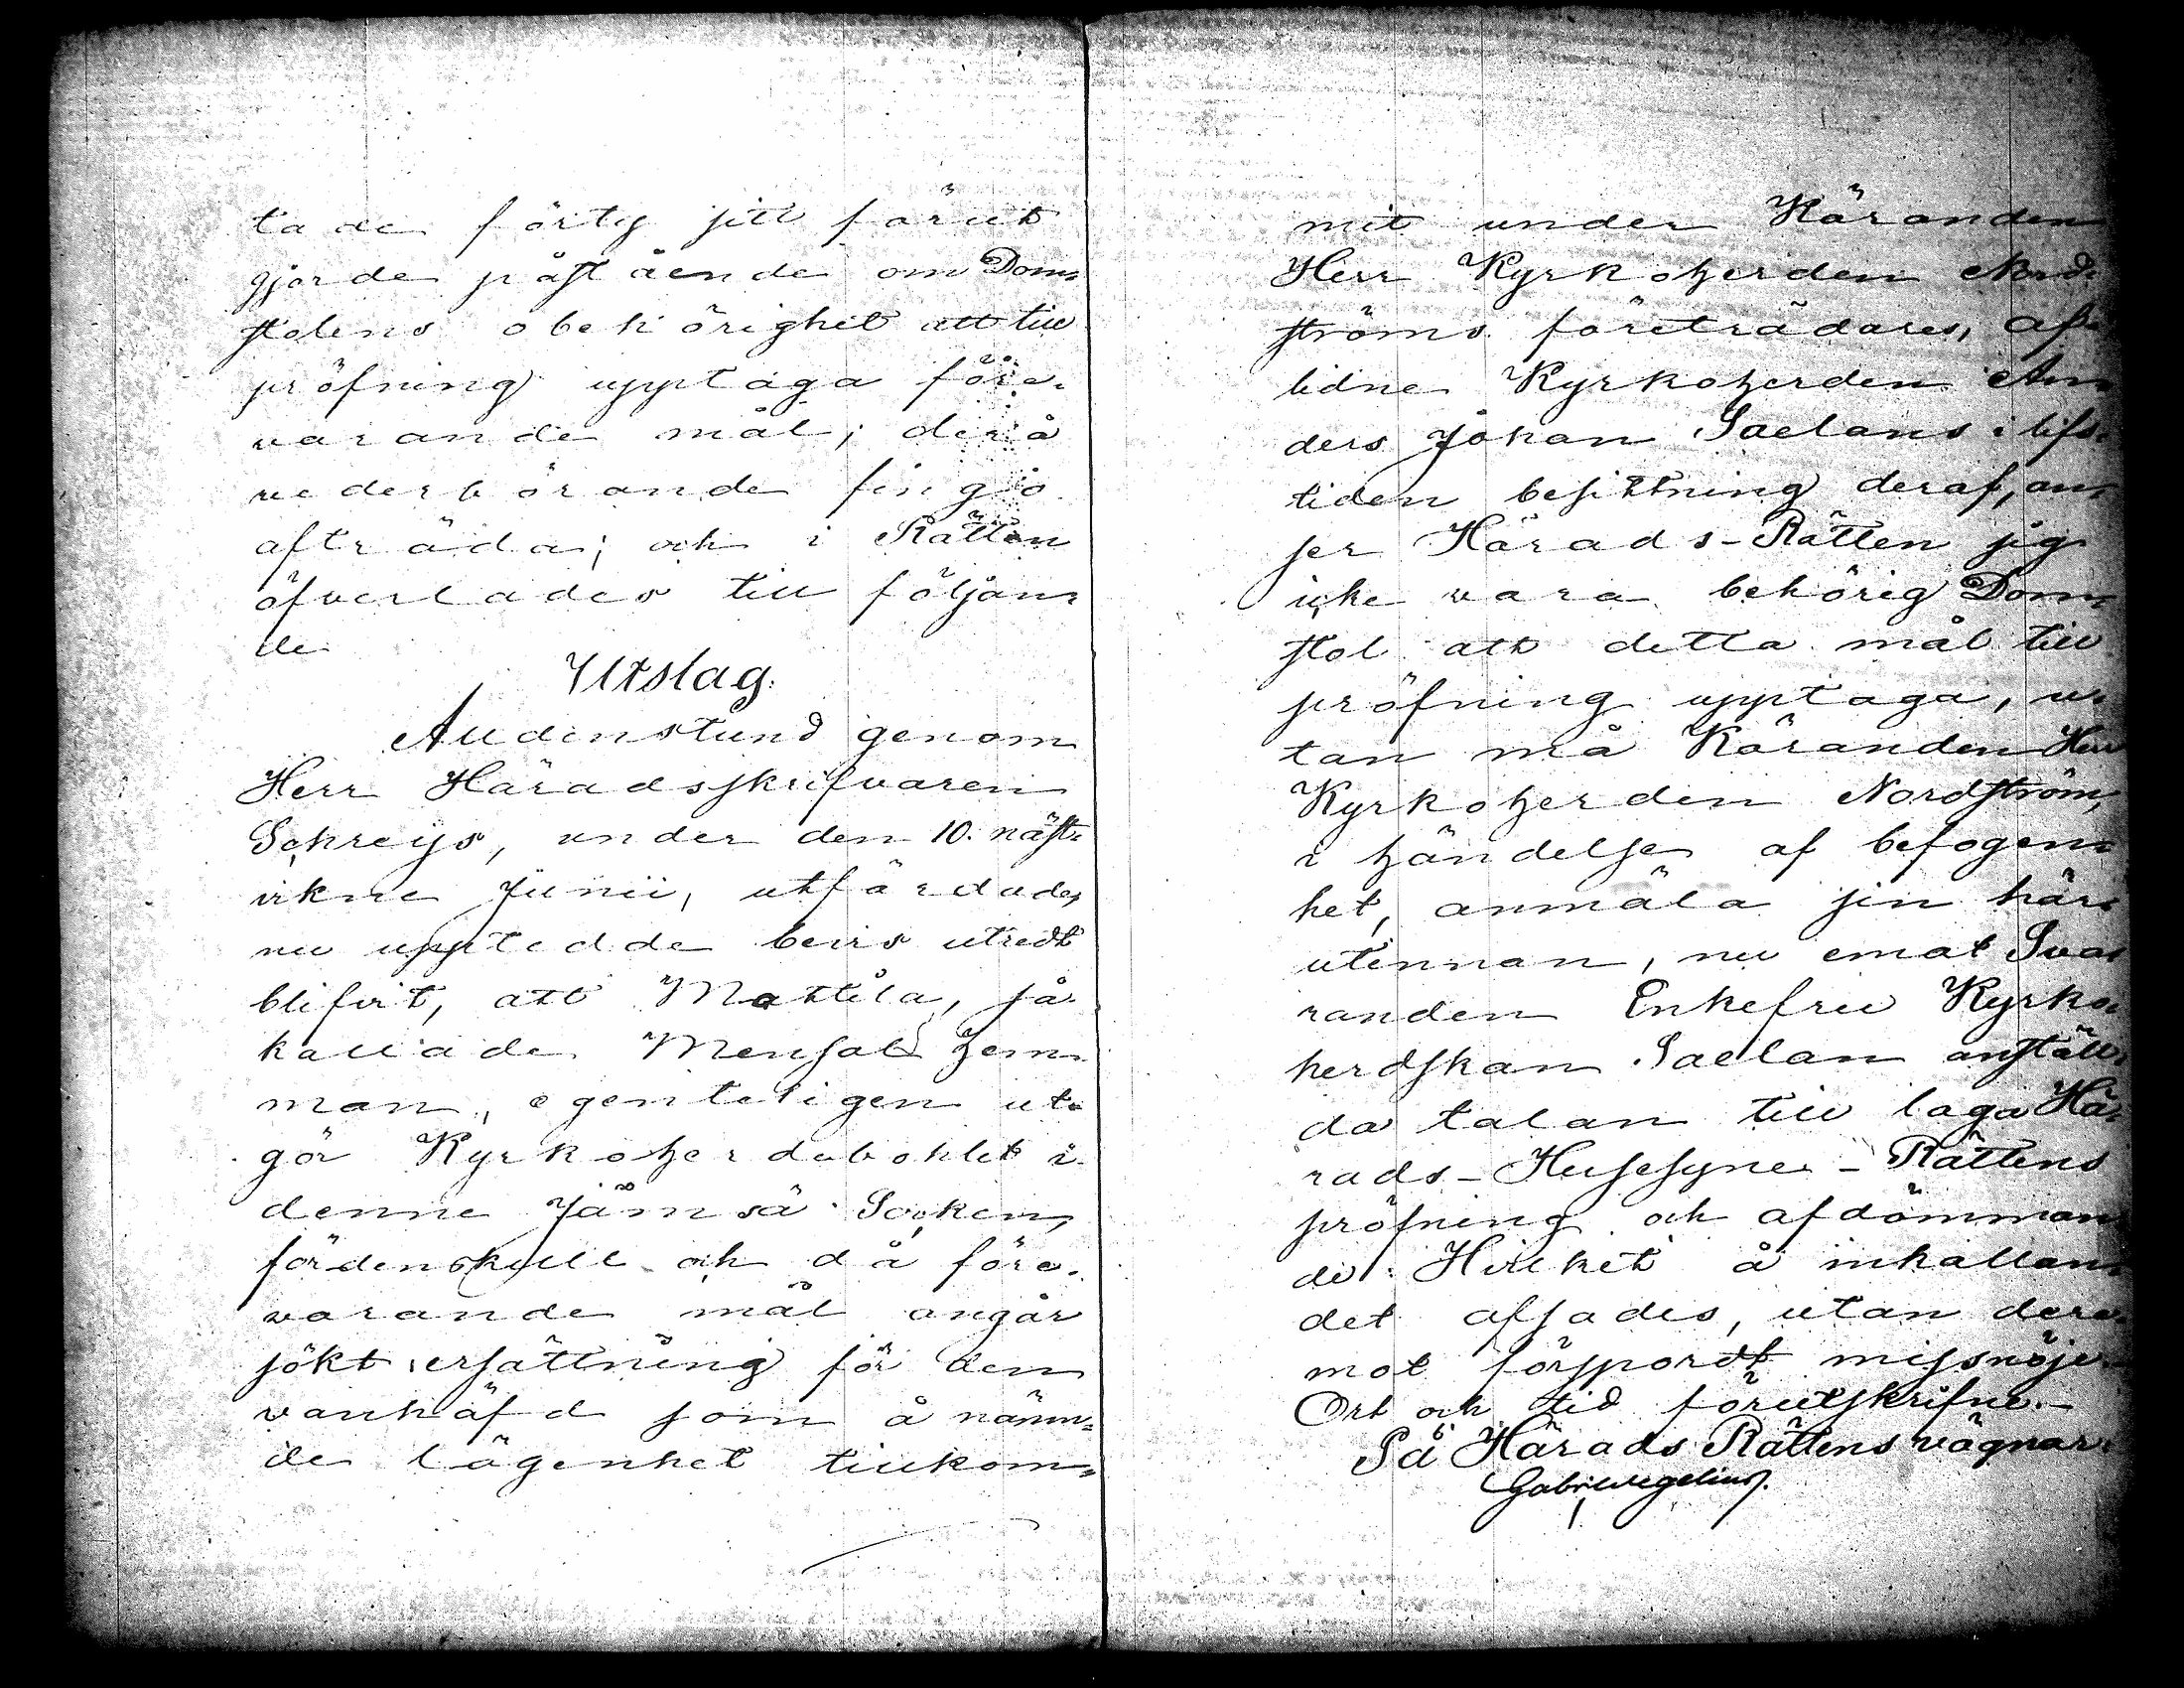 tade förty sitt förut
gjorde påstående om Dom=
stolens obehörighet att till
pröfning upptaga före=
varande mål; derå
vederbörande fingo
afträda; och i Rätten
öfverlades till följan=
de
Utslag.
Alldenstund genom
Herr Häradsskrifvaren
Schreijs, under den 10. näst=
vikne Junii, utfärdade,
nu upptedde bevis utredt
blifvit, att Mattila, så
kallade Mensal hem=
man, egenteligen ut=
gör Kyrkoherdebohlet i
denne Jämsä Socken,
fördenskull och då före=
varande mål angår
sökt ersättning för den
vanhäfd som å nämn=
de lägenhet tillkom=
mit under Käranden
Herr Kyrkoherden Nord=
ströms företrädares, af=
lidne Kyrkoherden An=
ders Johan Saelans i lifs=
tiden besittning deraf, an=
ser Härads-Rätten sig
icke vara behörig Dom=
stol att detta mål till
pröfning upptaga, u=
tan må Käranden Herr
Kyrkoherden Nordström,
i händelse af befogen=
het, anmäla sin här=
utinnan, nu emot Sva=
randen Enkefru Kyrko=
herdskan Saelan anställ=
da talan till laga Hä=
rads-Husesyne-Rättens
pröfning och afdömman=
de. Hvilket å inkallan=
det afsades, utan dere=
mot försport missnöje.
Ort och tid förutskrifne.-
På Härads Rättens vägnar:
Gabr Wegelius.